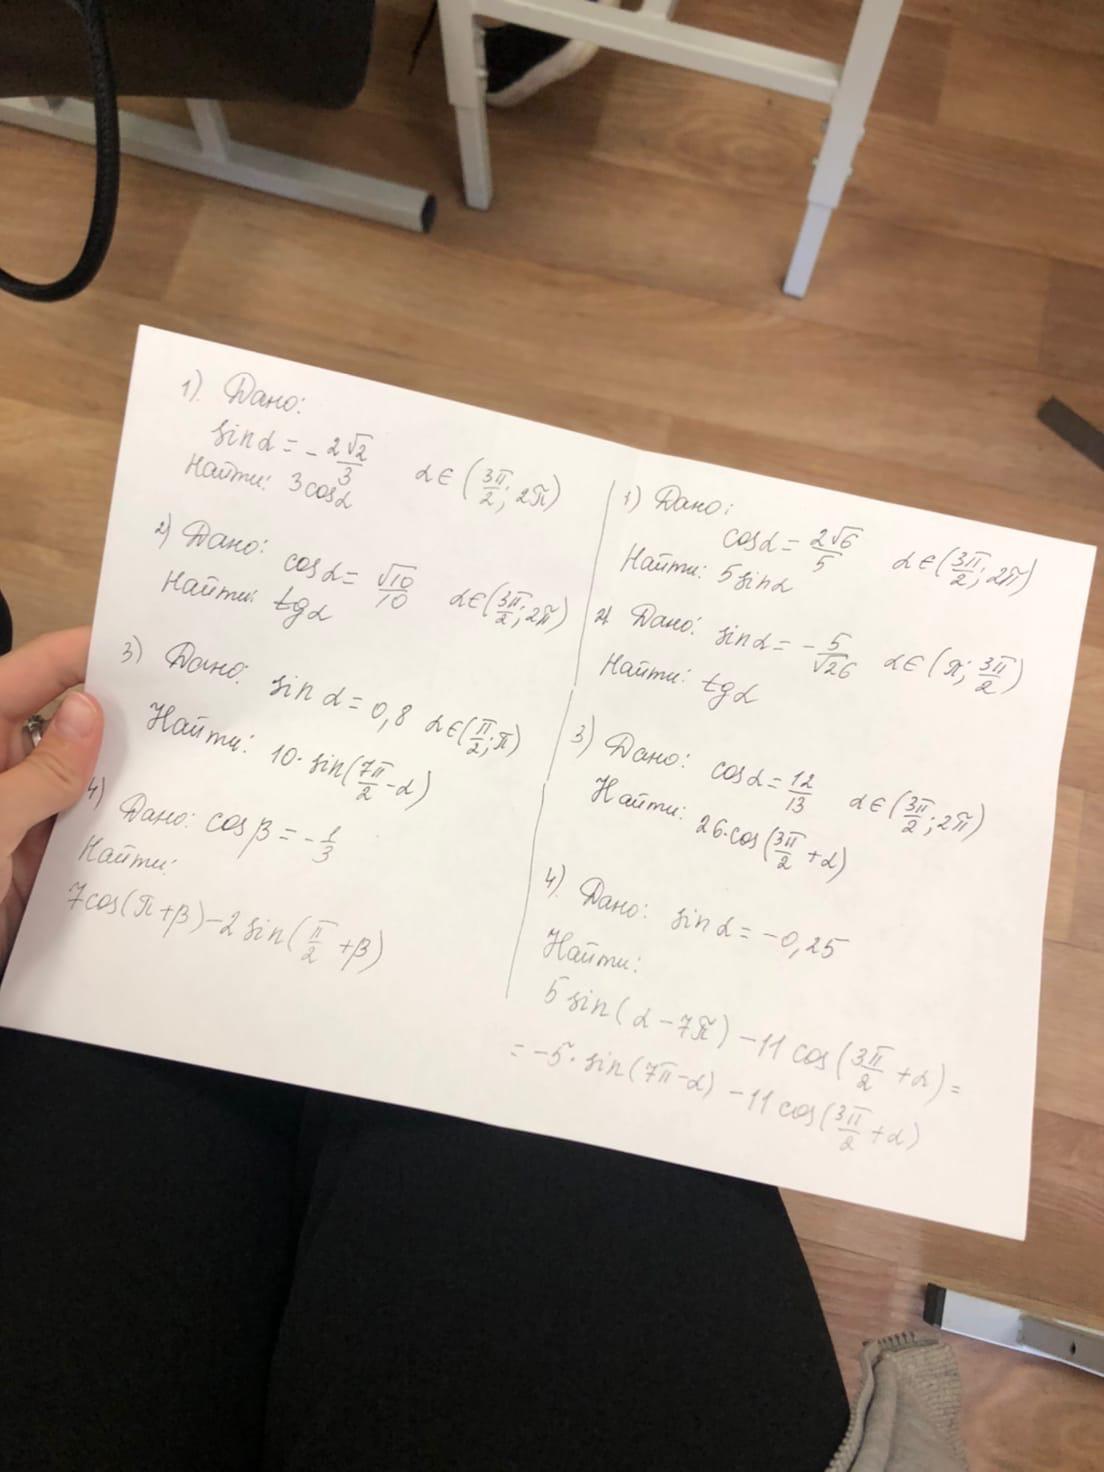 1). Дано:
sin α = - 2√2/3 α ∈ (3π/2; 2π)
Найти: 3cosα
2) Дано: cos α = √10/10 α ∈ (3π/2; 2π)
Найти: tg α
3) Дано: sin α = 0,8 α ∈ (π/2; π)
Найти: 10 · sin(7π/2 - α)
4) Дано: cos β = - 1/3
Найти:
7cos(π + β) - 2 sin(π/2 + β)
1) Дано:
cos α = 2√6/5 α ∈ (3π/2; 2π)
Найти: 5 sin α
2) Дано: sin α = - 5/√26 α ∈ (π; 3π/2)
Найти: tg α
3) Дано: cos α = 12/13 α ∈ (3π/2; 2π)
Найти: 26·cos(3π/2 + α)
4). Дано: sin α = -0,25
Найти:
5 sin(α - 7π) - 11 cos(3π/2 + α) =
= -5 · sin(7π - α) - 11 cos(3π/2 + α)